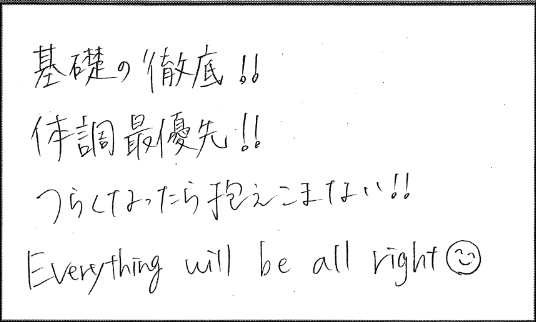 基礎の徹底!!
体調最優先!!
つらくなったら抱えこまない!!
Everything will be all right☺